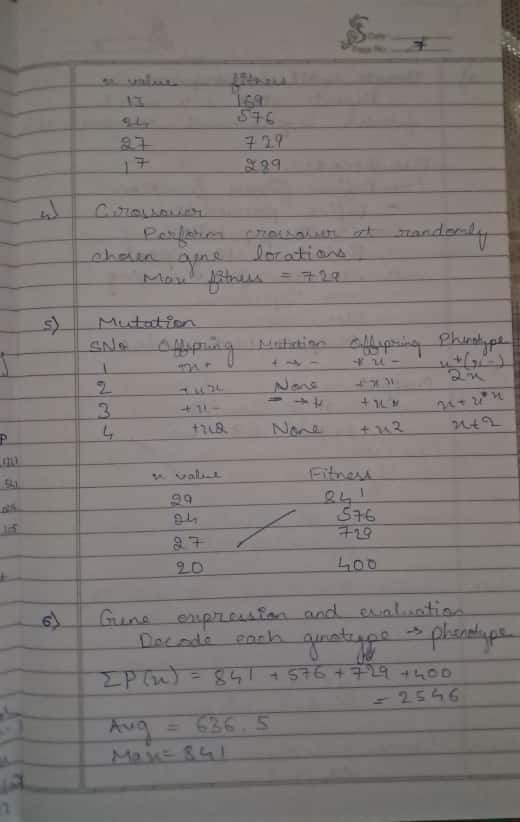 Date
Page No. 7
x value fitness
13 169
24 576
27 729
17 289
4) Crossover
Perform crossover at randomly
chosen gene locations.
Max fitness = 729
5) Mutation
SNo Offspring Mutation Offspring Phenotype
1 + → -
2 +xx None +xx 2x
3 +x- +xx
4 +x2 None +x2 x+2
x value Fitness
29 841
24 576
27 729
20 400
6) Gene expression and evaluation
Decode each genotype → phenotype
ΣP(x) = 841 + 576 + 729 + 400
= 2546
Avg = 636.5
Max = 841